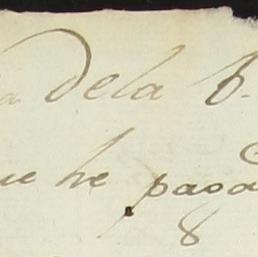 a dela b.
ue he pasa
8